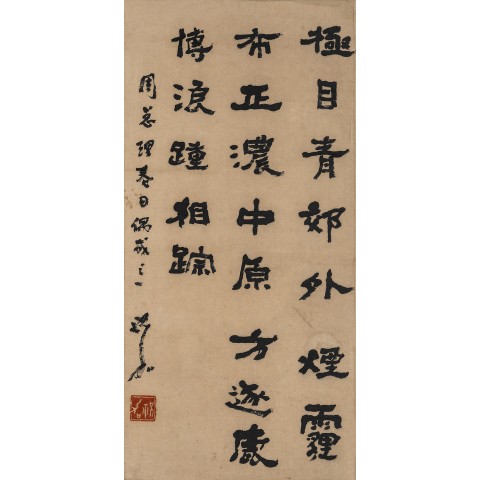 極目青郊外煙霾
布正濃中原方逐鹿
博浪踵相踪
周总理春日偶成之一